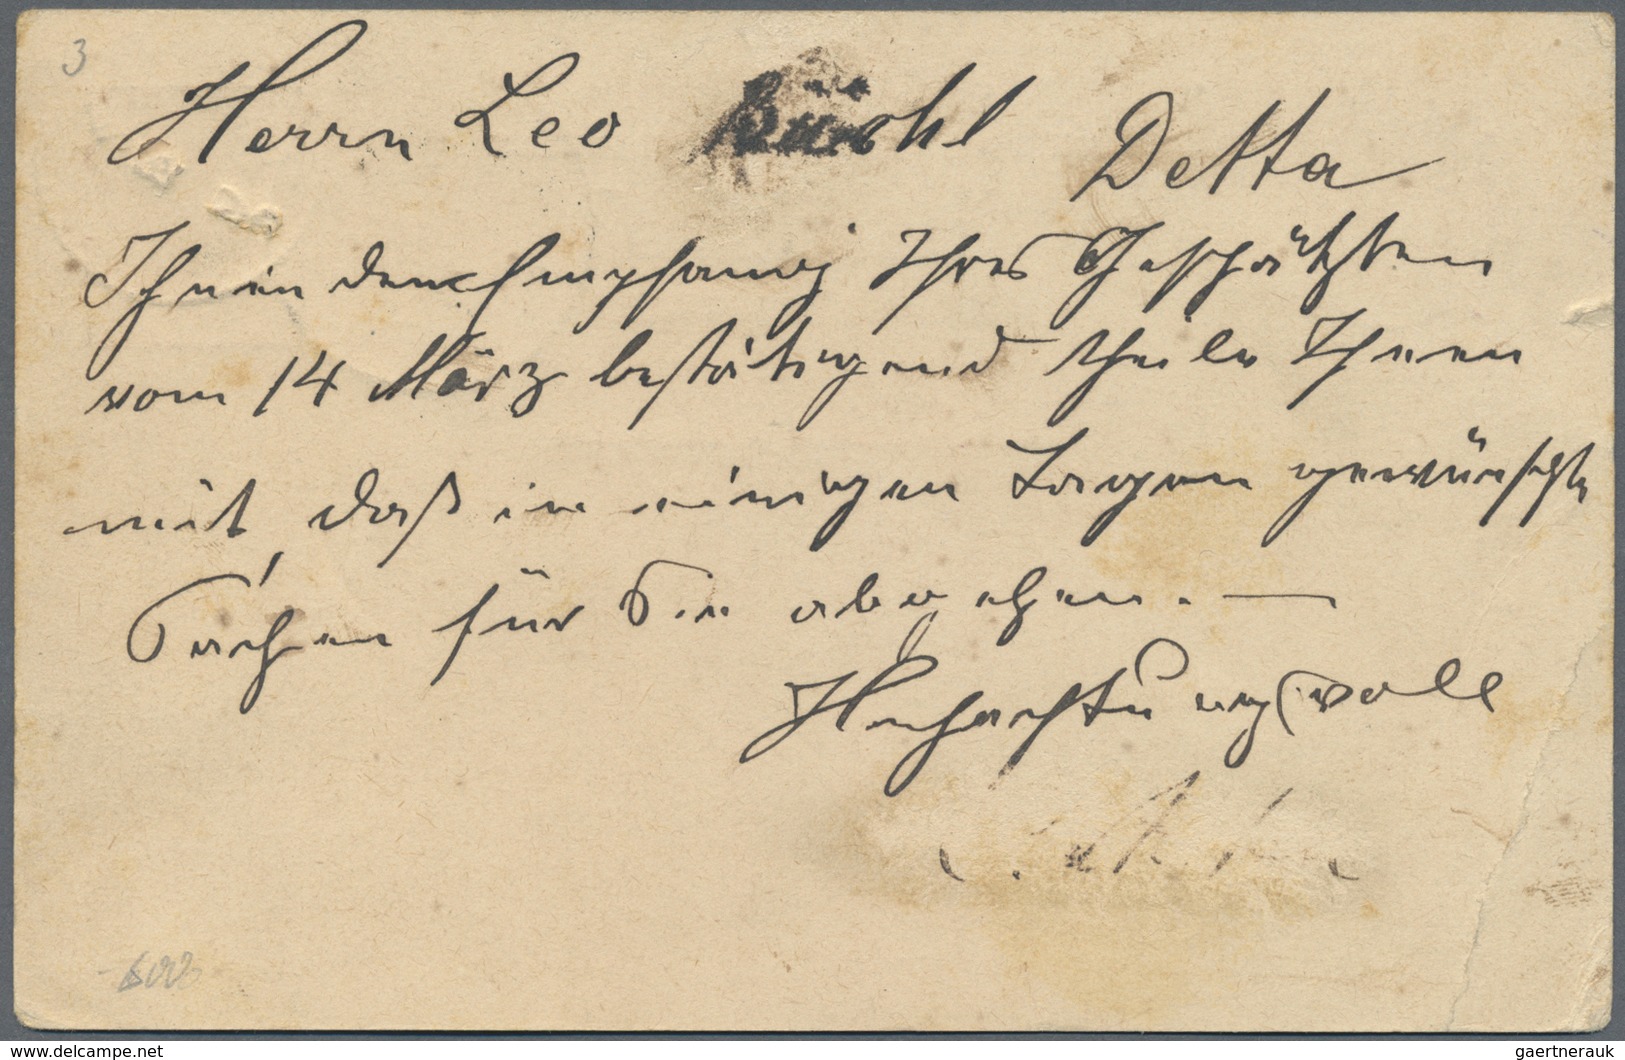 3
Herrn Leo Detta
Ihnen den Empfang Ihres Geschätzten
vom 14 März bestätigend theile Ihnen
mit, daß in einigen Tagen gewünschte
Sachen für Sie abgehen. —
Hochachtungsvoll
www.delcampe.net
gaertnerauk